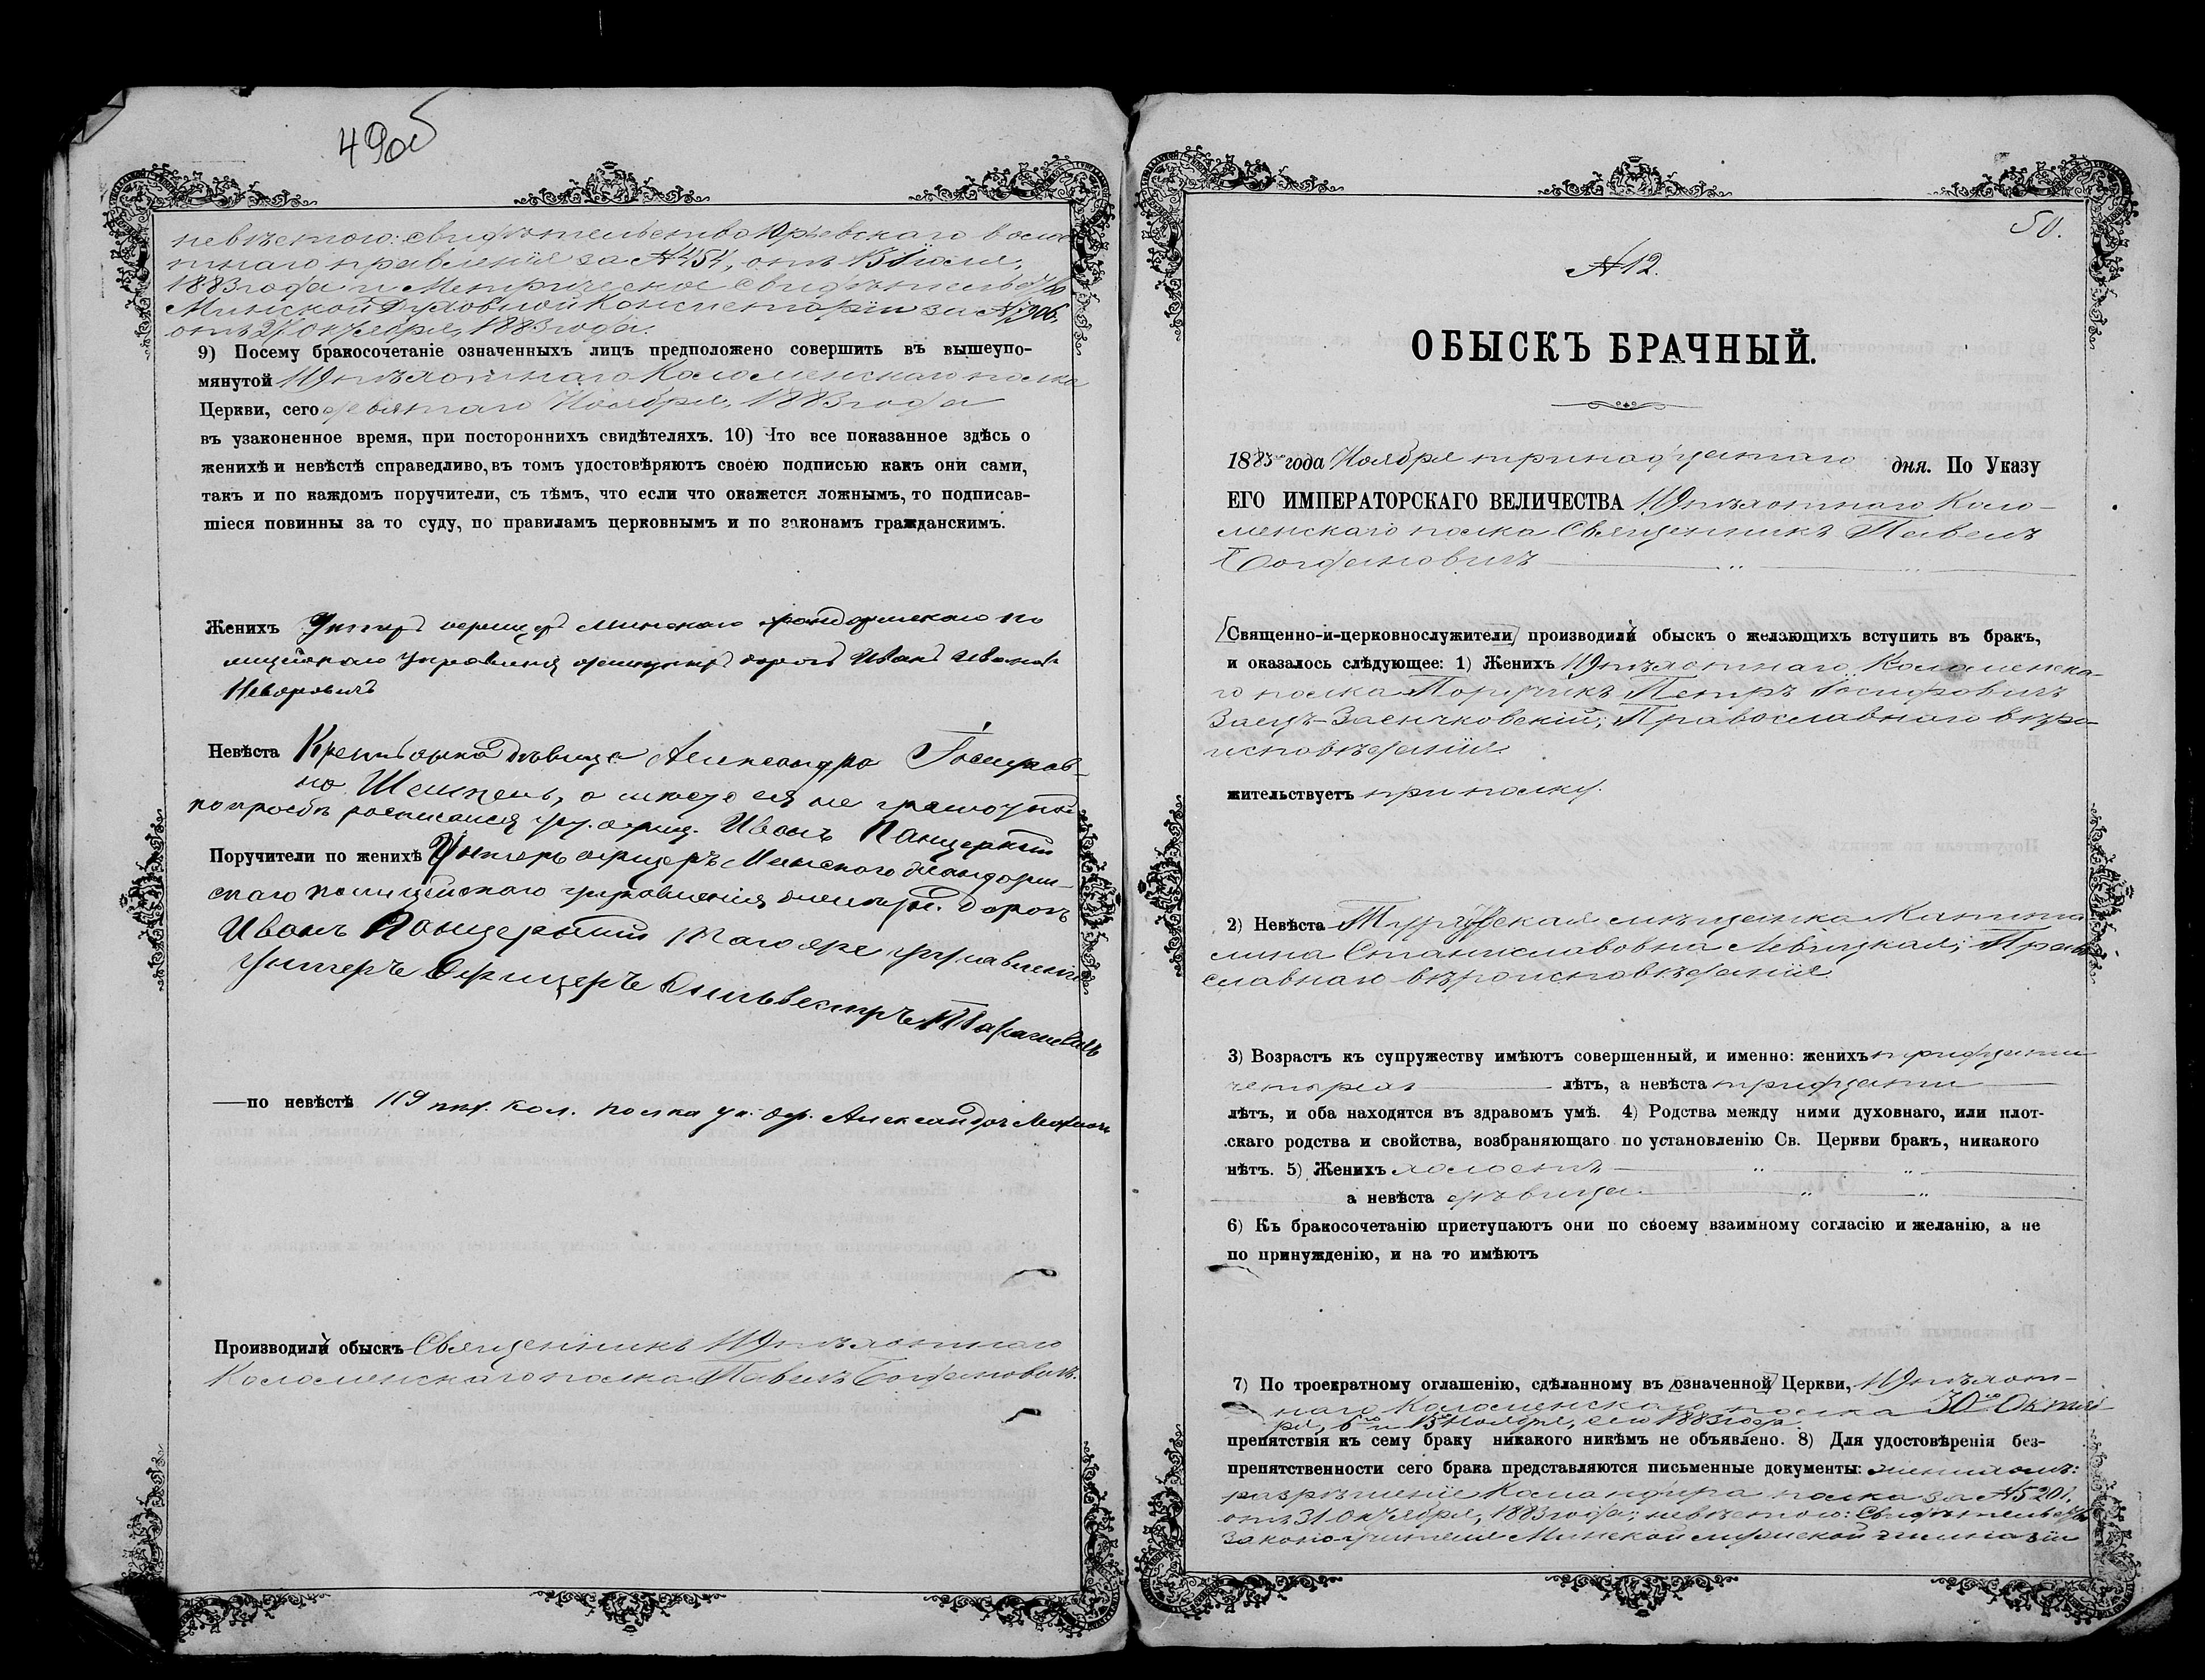 49об
невѣстою: свидѣтельство Юревскаго волос-
тнаго правленія за № 454, отъ 13 Іюля,
1883 года и Метрическое свидѣтельство
Минской Духовной Консисторіи за № 7906,
отъ 27 Октября, 1883 года.
9) Посему бракосочетаніе означенныхъ лицъ предположено совершить въ вышеупо-
мянутой 119 пѣхотнаго Коломенскаго полка
Церкви, сего девятаго Ноября, 1883 года
въ узаконенное время, при постороннихъ свидѣтеляхъ. 10) Что все показанное здѣсь о
женихѣ и невѣстѣ справедливо, въ томъ удостовѣряютъ своею подписью какъ они сами,
такъ и по каждомъ поручители, съ тѣмъ, что если что окажется ложнымъ, то подписав-
шіеся повинны за то суду, по правиламъ церковнымъ и по законамъ гражданскимъ.
Женихъ Унтеръ офицеръ Минскаго жандармскаго по
лицейскаго управленія Иванъ Ивановъ
Невѣста Крестьянка дѣвица Александра Іосифов-
на а вмѣсто ея не грамотной
по просьбѣ росписался ун. офиц. Иванъ
Поручители по женихѣ Унтеръ офицеръ Минскаго жандарм-
скаго полицейскаго управленія
Иванъ того же управленія
Унтеръ Офицеръ Сильвестръ
—по невѣстѣ 119 пѣх. Кол. полка ун. оф. Александръ
Производилъ обыскъ Священникъ 119 пѣхотнаго
Коломенскаго полка Павелъ Богдановичъ.
50.
№ 12.
ОБЫСКЪ БРАЧНЫЙ.
1883 года Ноября тринадцатаго дня. По Указу
ЕГО ИМПЕРАТОРСКАГО ВЕЛИЧЕСТВА 119 пѣхотнаго Коло-
менскаго полка Священникъ Павелъ
Богдановичъ
Священно-и-церковнослужители производилъ обыскъ о желающихъ вступить въ бракъ,
и оказалось слѣдующее: 1) Женихъ 119 пѣхотнаго Коломенска-
го полка Поручикъ Петръ Іосифовичъ
Заецъ-Заенчковскій, Православнаго вѣро-
исповѣданія
жительствуетъ при полку.
2) Невѣста мѣщанка
Станиславовна Левицкая, Право
славнаго вѣроисповѣданія
3) Возрастъ къ супружеству имѣютъ совершенный, и именно: женихъ тридцати
четырехъ лѣтъ, а невѣста тридцати
лѣтъ, и оба находятся въ здравомъ умѣ. 4) Родства между ними духовнаго, или плот-
скаго родства и свойства, возбраняющаго по установленію Св. Церкви бракъ, никакого
нѣтъ. 5) Женихъ холостъ
а невѣста дѣвица
6) Къ бракосочетанію приступаютъ они по своему взаимному согласію и желанію, а не
по принужденію, и на то имѣютъ
7) По троекратному оглашенію, сдѣланному въ означенной Церкви, 119 пѣхот-
наго Коломенскаго полка 30го Октяб
ря, 6го и 13го Ноября, сего 1883 года
препятствія къ сему браку никакого никѣмъ не объявлено. 8) Для удостовѣренія без-
препятственности сего брака представляются письменные документы: женихомъ:
разрѣшеніе Командира полка за № 5201.
отъ 31 Октября, 1883 года; невѣстою: Свидѣтельство
законоучителя Минской мужской гимназіи